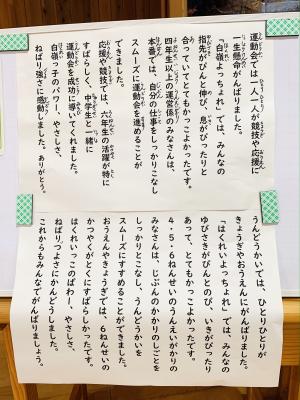 運動会では、一人一人が競技や応援に
一生懸命がんばりました。
「白嶺よっちょれ」では、みんなの
指先がぴんと伸び、息がぴったりと
合っていてとてもかっこよかったです。
四年生以上の運営係のみなさんは、
本番では、自分の仕事をしっかりこなし
スムーズに運動会を進めることが
できました。
応援や競技では、六年生の活躍が特に
すばらしく、中学生と一緒に
運動会を成功に導いてくれました。
白嶺っ子のパワー、やさしさ、
ねばり強さに感動しました。ありがとう。
うんどうかいでは、ひとりひとりが
きょうぎやおうえんにがんばりました。
「はくれいよっちょれ」では、みんなの
ゆびさきがぴんとのび、いきがぴったり
あって、とてもかっこよかったです。
4・5・6ねんせいのうんえいがかりの
みなさんは、じぶんのかかりのしごとを
しっかりとこなし、うんどうかいを
スムーズにすすめることができました。
おうえんやきょうぎでは、6ねんせいの
かつやくがとくにすばらしかったです。
はくれいっこのぱわー、やさしさ、
ねばりつよさにかんどうしました。
これからもみんなでがんばりましょう。